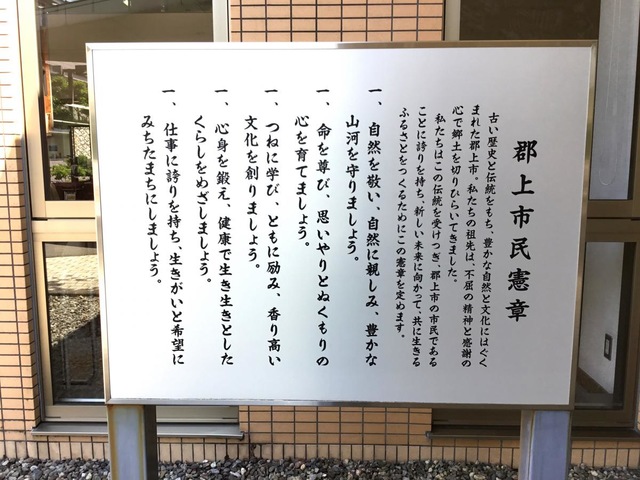 郡上市民憲章
古い歴史と伝統をもち、豊かな自然と文化にはぐく
まれた郡上市。私たちの祖先は、不屈の精神と感謝の
心で郷土を切りひらいてきました。
私たちはこの伝統を受けつぎ、郡上市の市民である
ことに誇りを持ち、新しい未来に向かって、共に生きる
ふるさとをつくるためにこの憲章を定めます。
一、自然を敬い、自然に親しみ、豊かな
山河を守りましょう。
一、命を尊び、思いやりとぬくもりの
心を育てましょう。
一、つねに学び、ともに励み、香り高い
文化を創りましょう。
一、心身を鍛え、健康で生き生きとした
くらしをめざしましょう。
一、仕事に誇りを持ち、生きがいと希望に
みちたまちにしましょう。